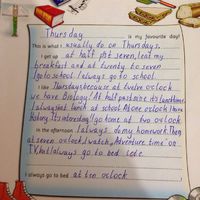 Thursday is my favourite day!
This is what I usually do on Thursdays.
I get up at half past seven, I eat my
breakfast and at twenty to seven
I go to school I always go to school.
I like Thursdays because at twelve o'clock
we have Biology! At half past one it's lunchtime.
I always eat lunch at school. At one o'clock I have
history. It's interesting! I go home at two o'clock
In the afternoon I always do my homework. Then
at seven o'clock, I watch, Adventure time on
TV, but I always go to bed late
I always go to bed at ten o'clock